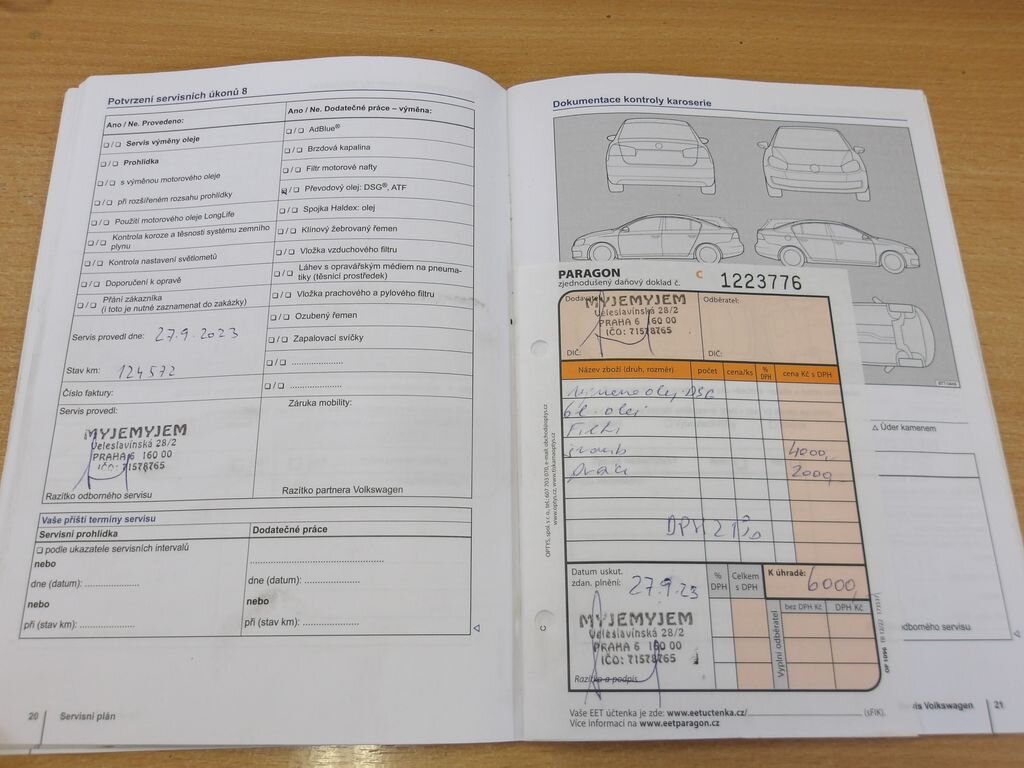 Potvrzení servisních úkonů 8
Ano / Ne. Provedeno:
❏ / ❏ Servis výměny oleje
❏ / ❏ Prohlídka
❏ / ❏ s výměnou motorového oleje
❏ / ❏ při rozšířeném rozsahu prohlídky
❏ / ❏ Použití motorového oleje LongLife
❏ / ❏ Kontrola koroze a těsnosti systému zemního
plynu
❏ / ❏ Kontrola nastavení světlometů
❏ / ❏ Doporučení k opravě
❏ / ❏ Přání zákazníka
(i toto je nutné zaznamenat do zakázky)
Servis provedl dne: 27.9.2023
Stav km: 124572
Číslo faktury:
Servis provedl:
MYJEMYJEM
Veleslavínská 28/2
PRAHA 6 160 00
IČO: 71578765
Razítko odborného servisu
Ano / Ne. Dodatečné práce – výměna:
❏ / ❏ AdBlue®
❏ / ❏ Brzdová kapalina
❏ / ❏ Filtr motorové nafty
❏ / ❏ Převodový olej: DSG®, ATF
❏ / ❏ Spojka Haldex: olej
❏ / ❏ Klínový žebrovaný řemen
❏ / ❏ Vložka vzduchového filtru
❏ / ❏ Láhev s opravářským médiem na pneuma-
tiky (těsnicí prostředek)
❏ / ❏ Vložka prachového a pylového filtru
❏ / ❏ Ozubený řemen
❏ / ❏ Zapalovací svíčky
❏ / ❏ ......................
❏ / ❏ ......................
Záruka mobility:
Razítko partnera Volkswagen
Vaše příští termíny servisu
Servisní prohlídka
❏ podle ukazatele servisních intervalů
nebo
dne (datum): ...............
nebo
při (stav km): ...............
Dodatečné práce
dne (datum): ...............
nebo
při (stav km): ...............
20 Servisní plán
Dokumentace kontroly karoserie
△ Úder kamenem
odborného servisu
Volkswagen 21
PARAGON C 1223776
zjednodušený daňový doklad č.
Dodavatel:
MYJEMYJEM
Veleslavínská 28/2
PRAHA 6 160 00
IČO: 71578765
DIČ:
Odběratel:
DIČ:
Název zboží (druh, rozměr) počet cena/ks % DPH cena Kč s DPH
olej DSG
6l. olej
Filtr
šroub 4000,-
práce 2000,-
DPH 21%
Datum uskut.
zdan. plnění: 27.9.23
% DPH
Celkem s DPH
K úhradě: 6000,
bez DPH Kč DPH Kč
Vyplní odběratel
MYJEMYJEM
Veleslavínská 28/2
PRAHA 6 160 00
IČO: 71578765
Razítko a podpis
Vaše EET účtenka je zde: www.eetuctenka.cz/ (sFIK).
Více informací na www.eetparagon.cz